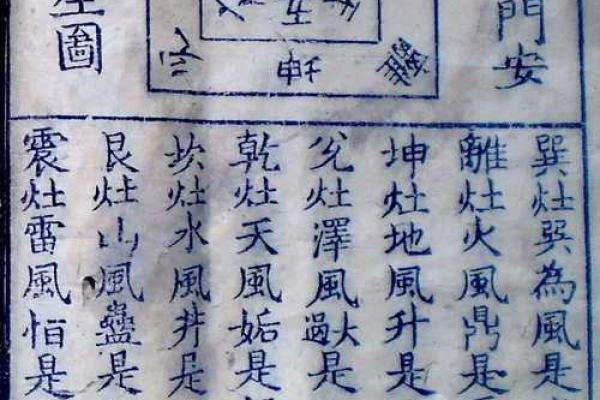 門安
圖
巽灶巽為風是
離灶火風鼎是
坤灶地風升是
兌灶澤風大過是
乾灶天風姤是
坎灶水風井是
艮灶山風蠱是
震灶雷風恒是